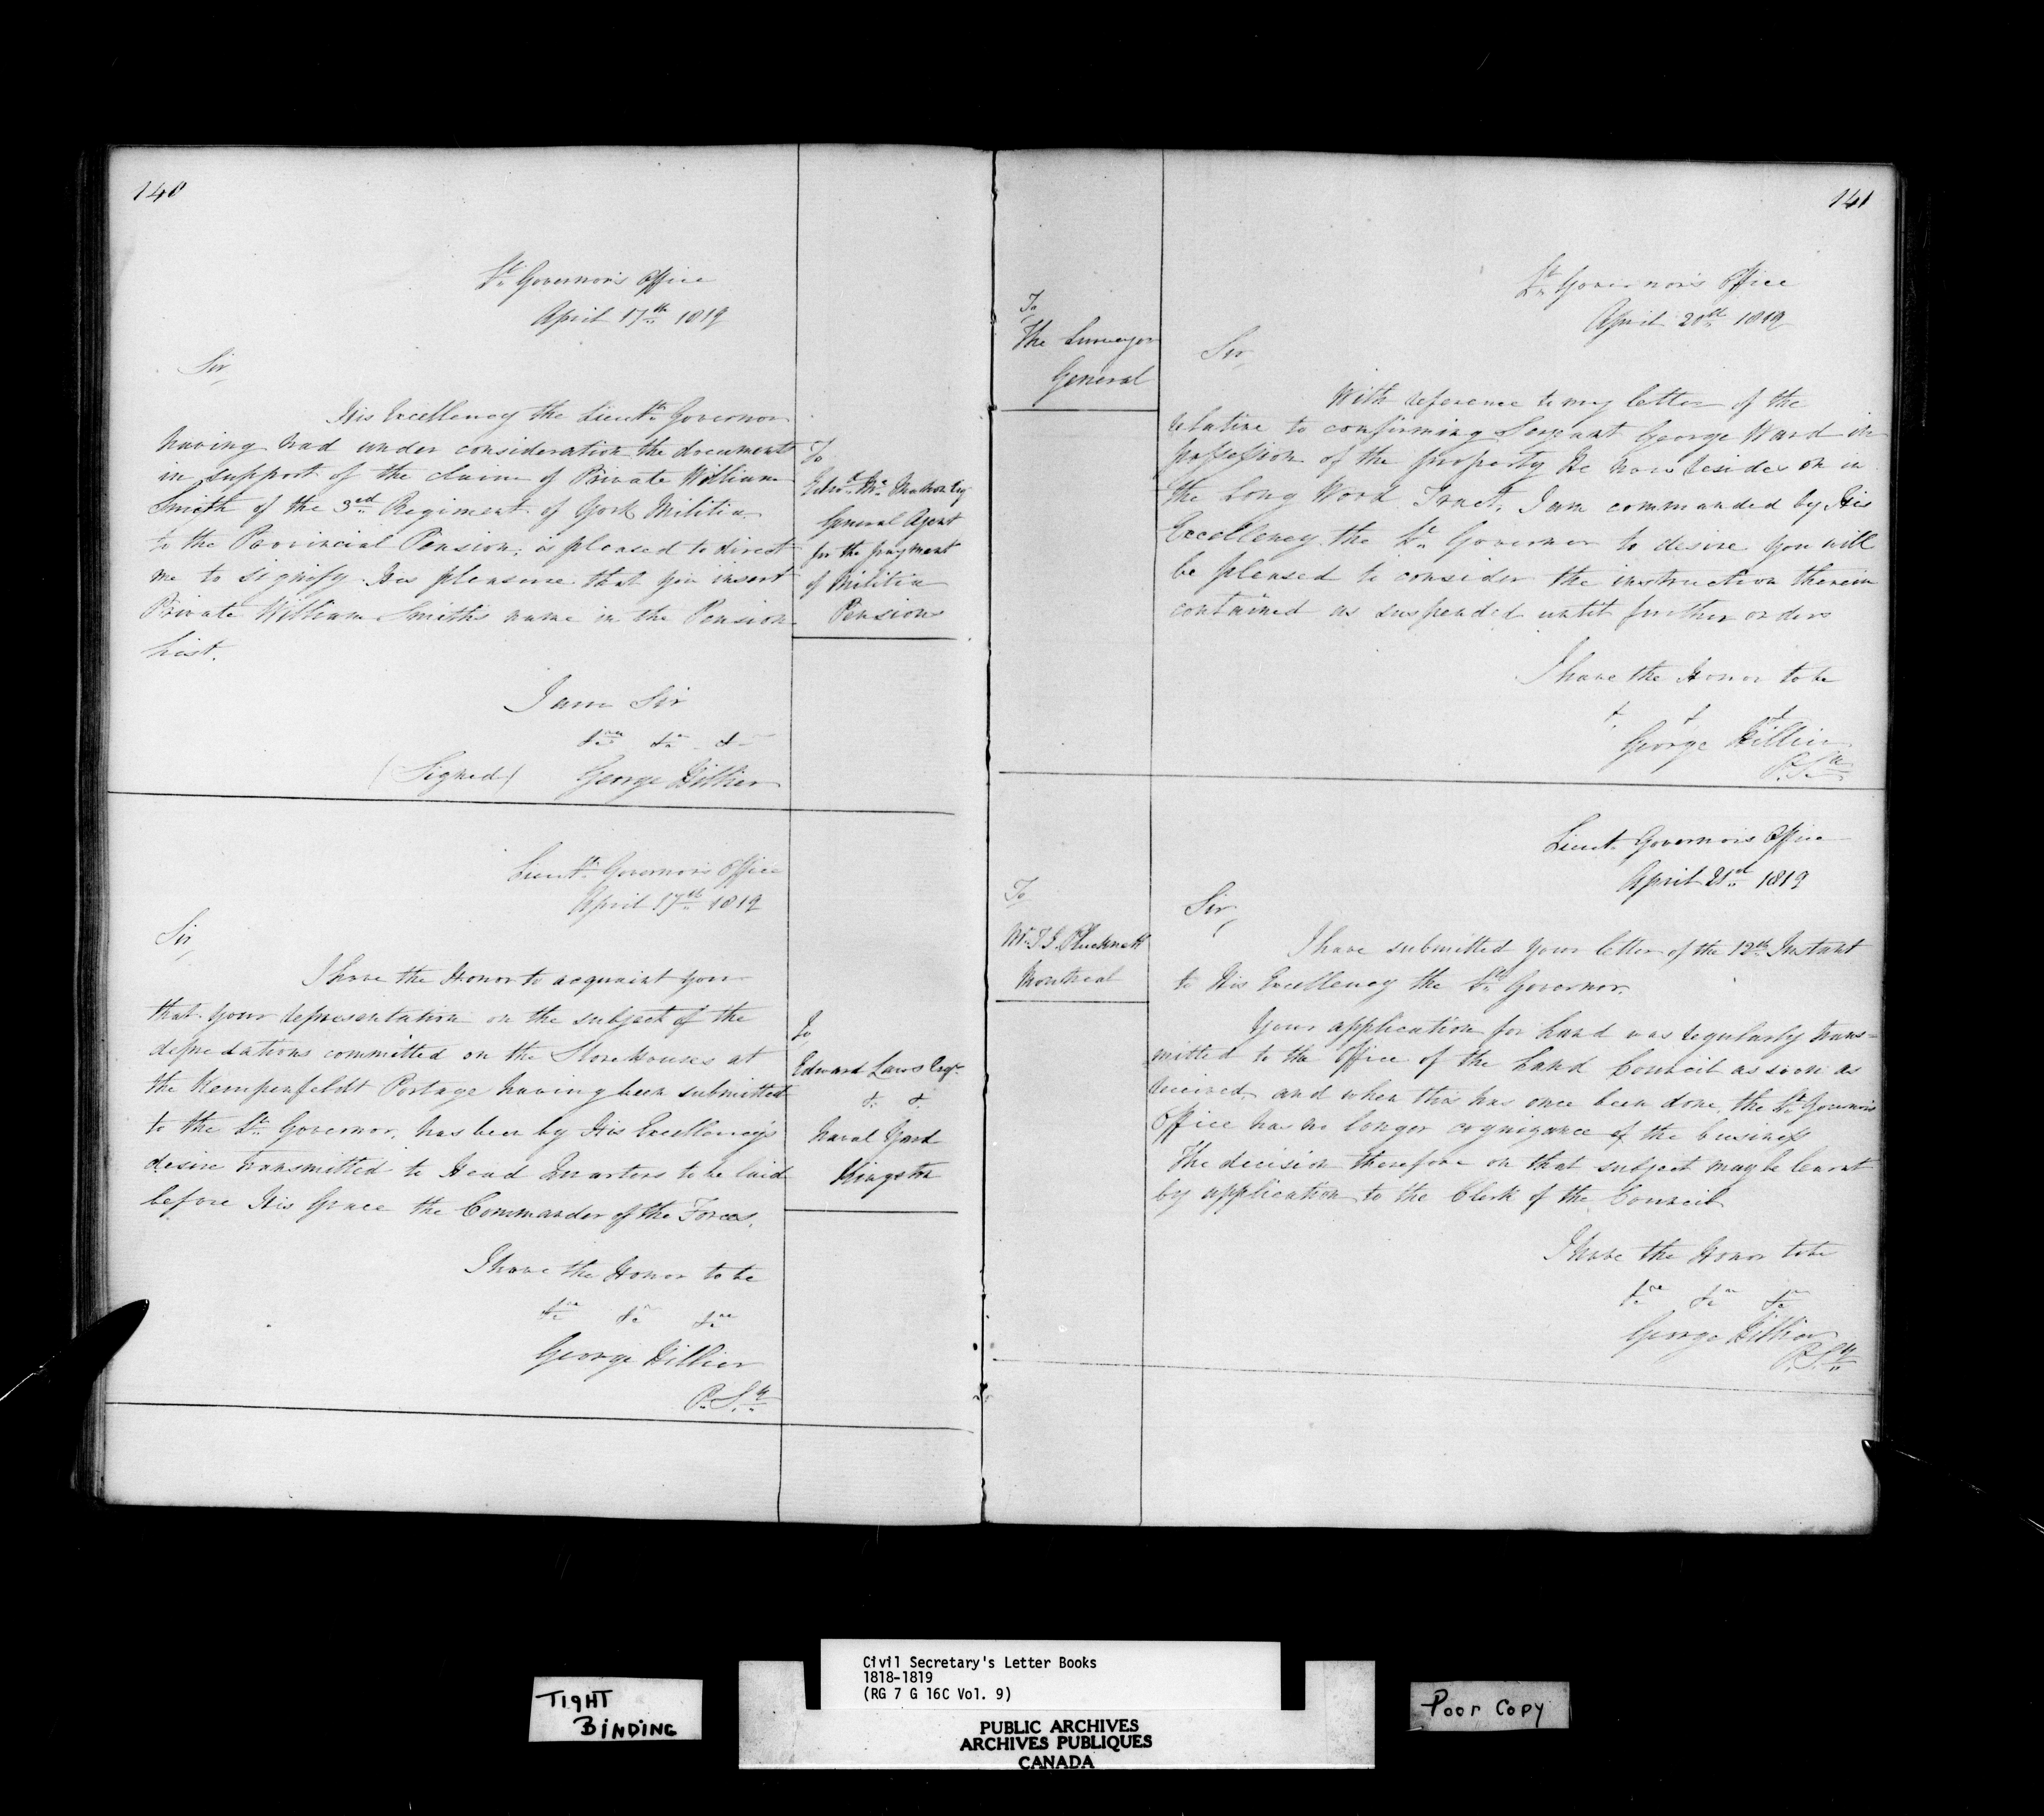 140
Lt. Governor's Office
April 17th 1819
Sir,
His Excellency the Lieutt. Governor
having had under consideration the documents
in support of the claim of Private William
Smith of the 3rd Regiment of York Militia
to the Provincial Pension, is pleased to direct
me to signify His pleasure that you insert
Private William Smith's name in the Pension
List.
I am Sir
&c &c &c
(Signed) George Hillier
To
Mahon Esq
General Agent
for the payment
of Militia
Pensions
Lieutt. Governor's Office
April 17th 1819
Sir,
I have the Honor to acquaint you
that your representation on the subject of the
depredations committed on the Storehouses at
the Kempenfeldt Portage having been submitted
to the Lt. Governor, has been by His Excellency's
desire transmitted to Head Quarters to be laid
before His Grace the Commander of the Forces.
I have the Honor to be
&c &c &c
George Hillier
P. S.y
To
Edward Laws Esqr.
&c &c
Naval Yard
Kingston
141
To
The Surveyor
General
Lt. Governor's Office
April 20th 1819
Sir,
With reference to my letter of the
relative to confirming Serjeant George Ward in
possession of the property He now resides on in
the Long Wood Tract, I am commanded by His
Excellency the Lt. Governor to desire you will
be pleased to consider the instruction therein
contained as suspended until further orders
I have the Honor to be
& & &
George Hillier
P. S.y
To
Mr. T. G. Plucknett
Montreal
Lieut. Governor's Office
April 21st 1819
Sir,
I have submitted your letter of the 12th Instant
to His Excellency the Lt. Governor.
Your application for Land was regularly trans=
mitted to the Office of the Land Council as soon as
received, and when this has once been done, the Lt. Governor's
Office has no longer cognizance of the business
The decision therefore on that subject may be learnt
by application to the Clerk of the Council
I have the Honor to be
&c &c &c
George Hillier
P. S.y
TIGHT
BINDING
Civil Secretary's Letter Books
1818-1819
(RG 7 G 16C Vol. 9)
PUBLIC ARCHIVES
ARCHIVES PUBLIQUES
CANADA
Poor Copy